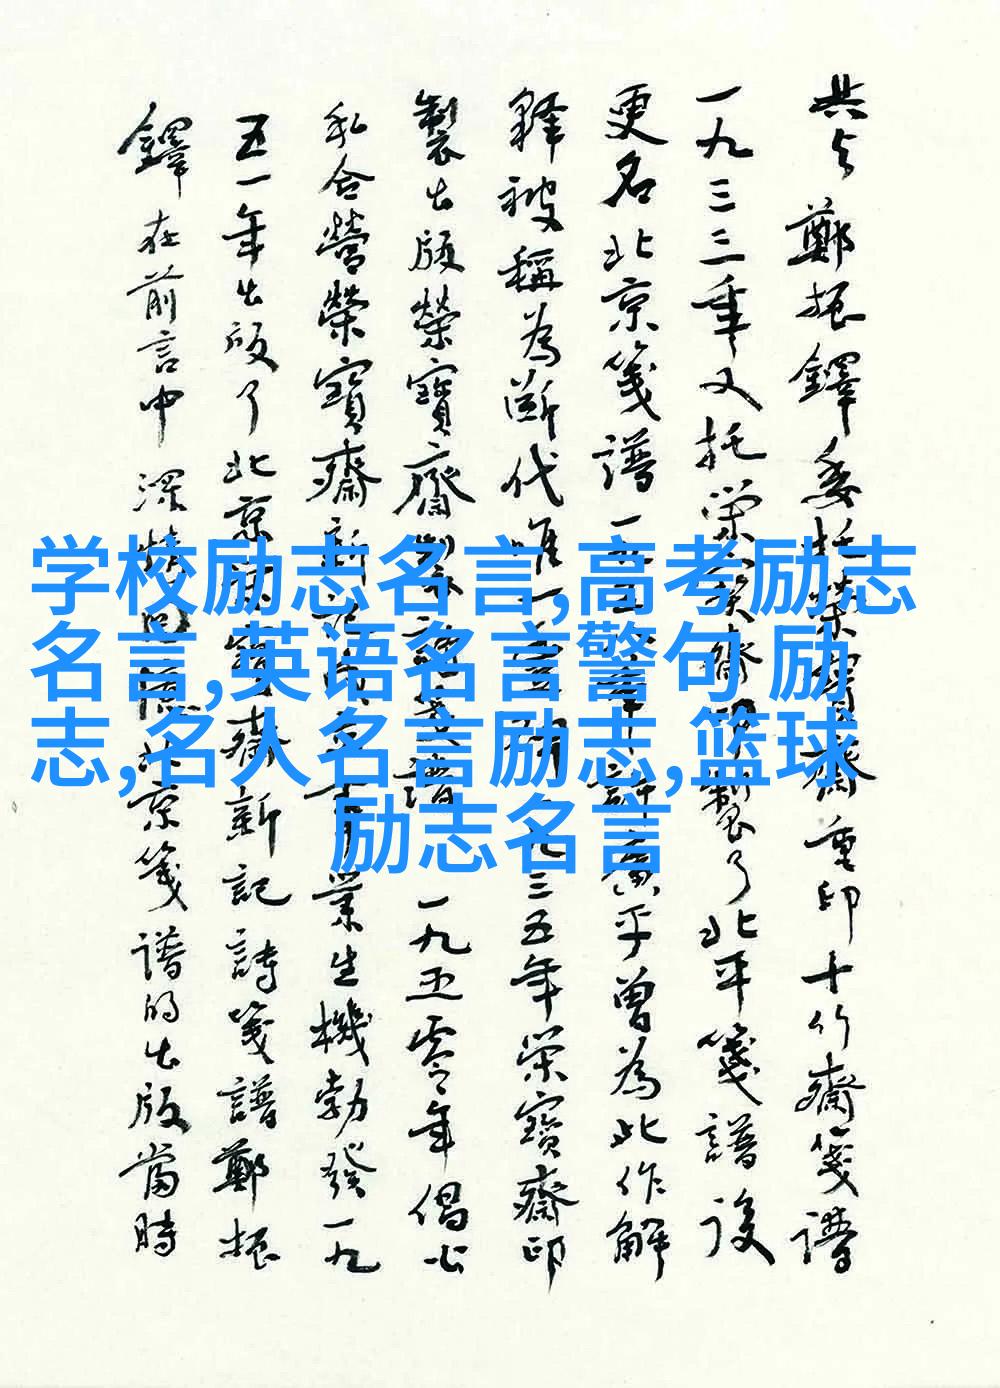 共与鄭振鐸委托榮寶齋重印十竹齋箋譜
一九三三年又托榮寶齋印製了北平箋譜後
更名北京箋譜一九五年許廣平曾為此作解
釋被稱為断代唯一九三五年榮寶齋印
製出版榮寶齋譜一九五零年倡公
私合營榮寶齋新記業生機勃發一九
五一年出版了北京榮寶齋新記詩箋譜鄭振
鐸在前言中深情回憶北京箋譜的出版當時
学校励志名言,高考励志
名言,英语名言警句 励
志,名人名言励志,篮球
励志名言